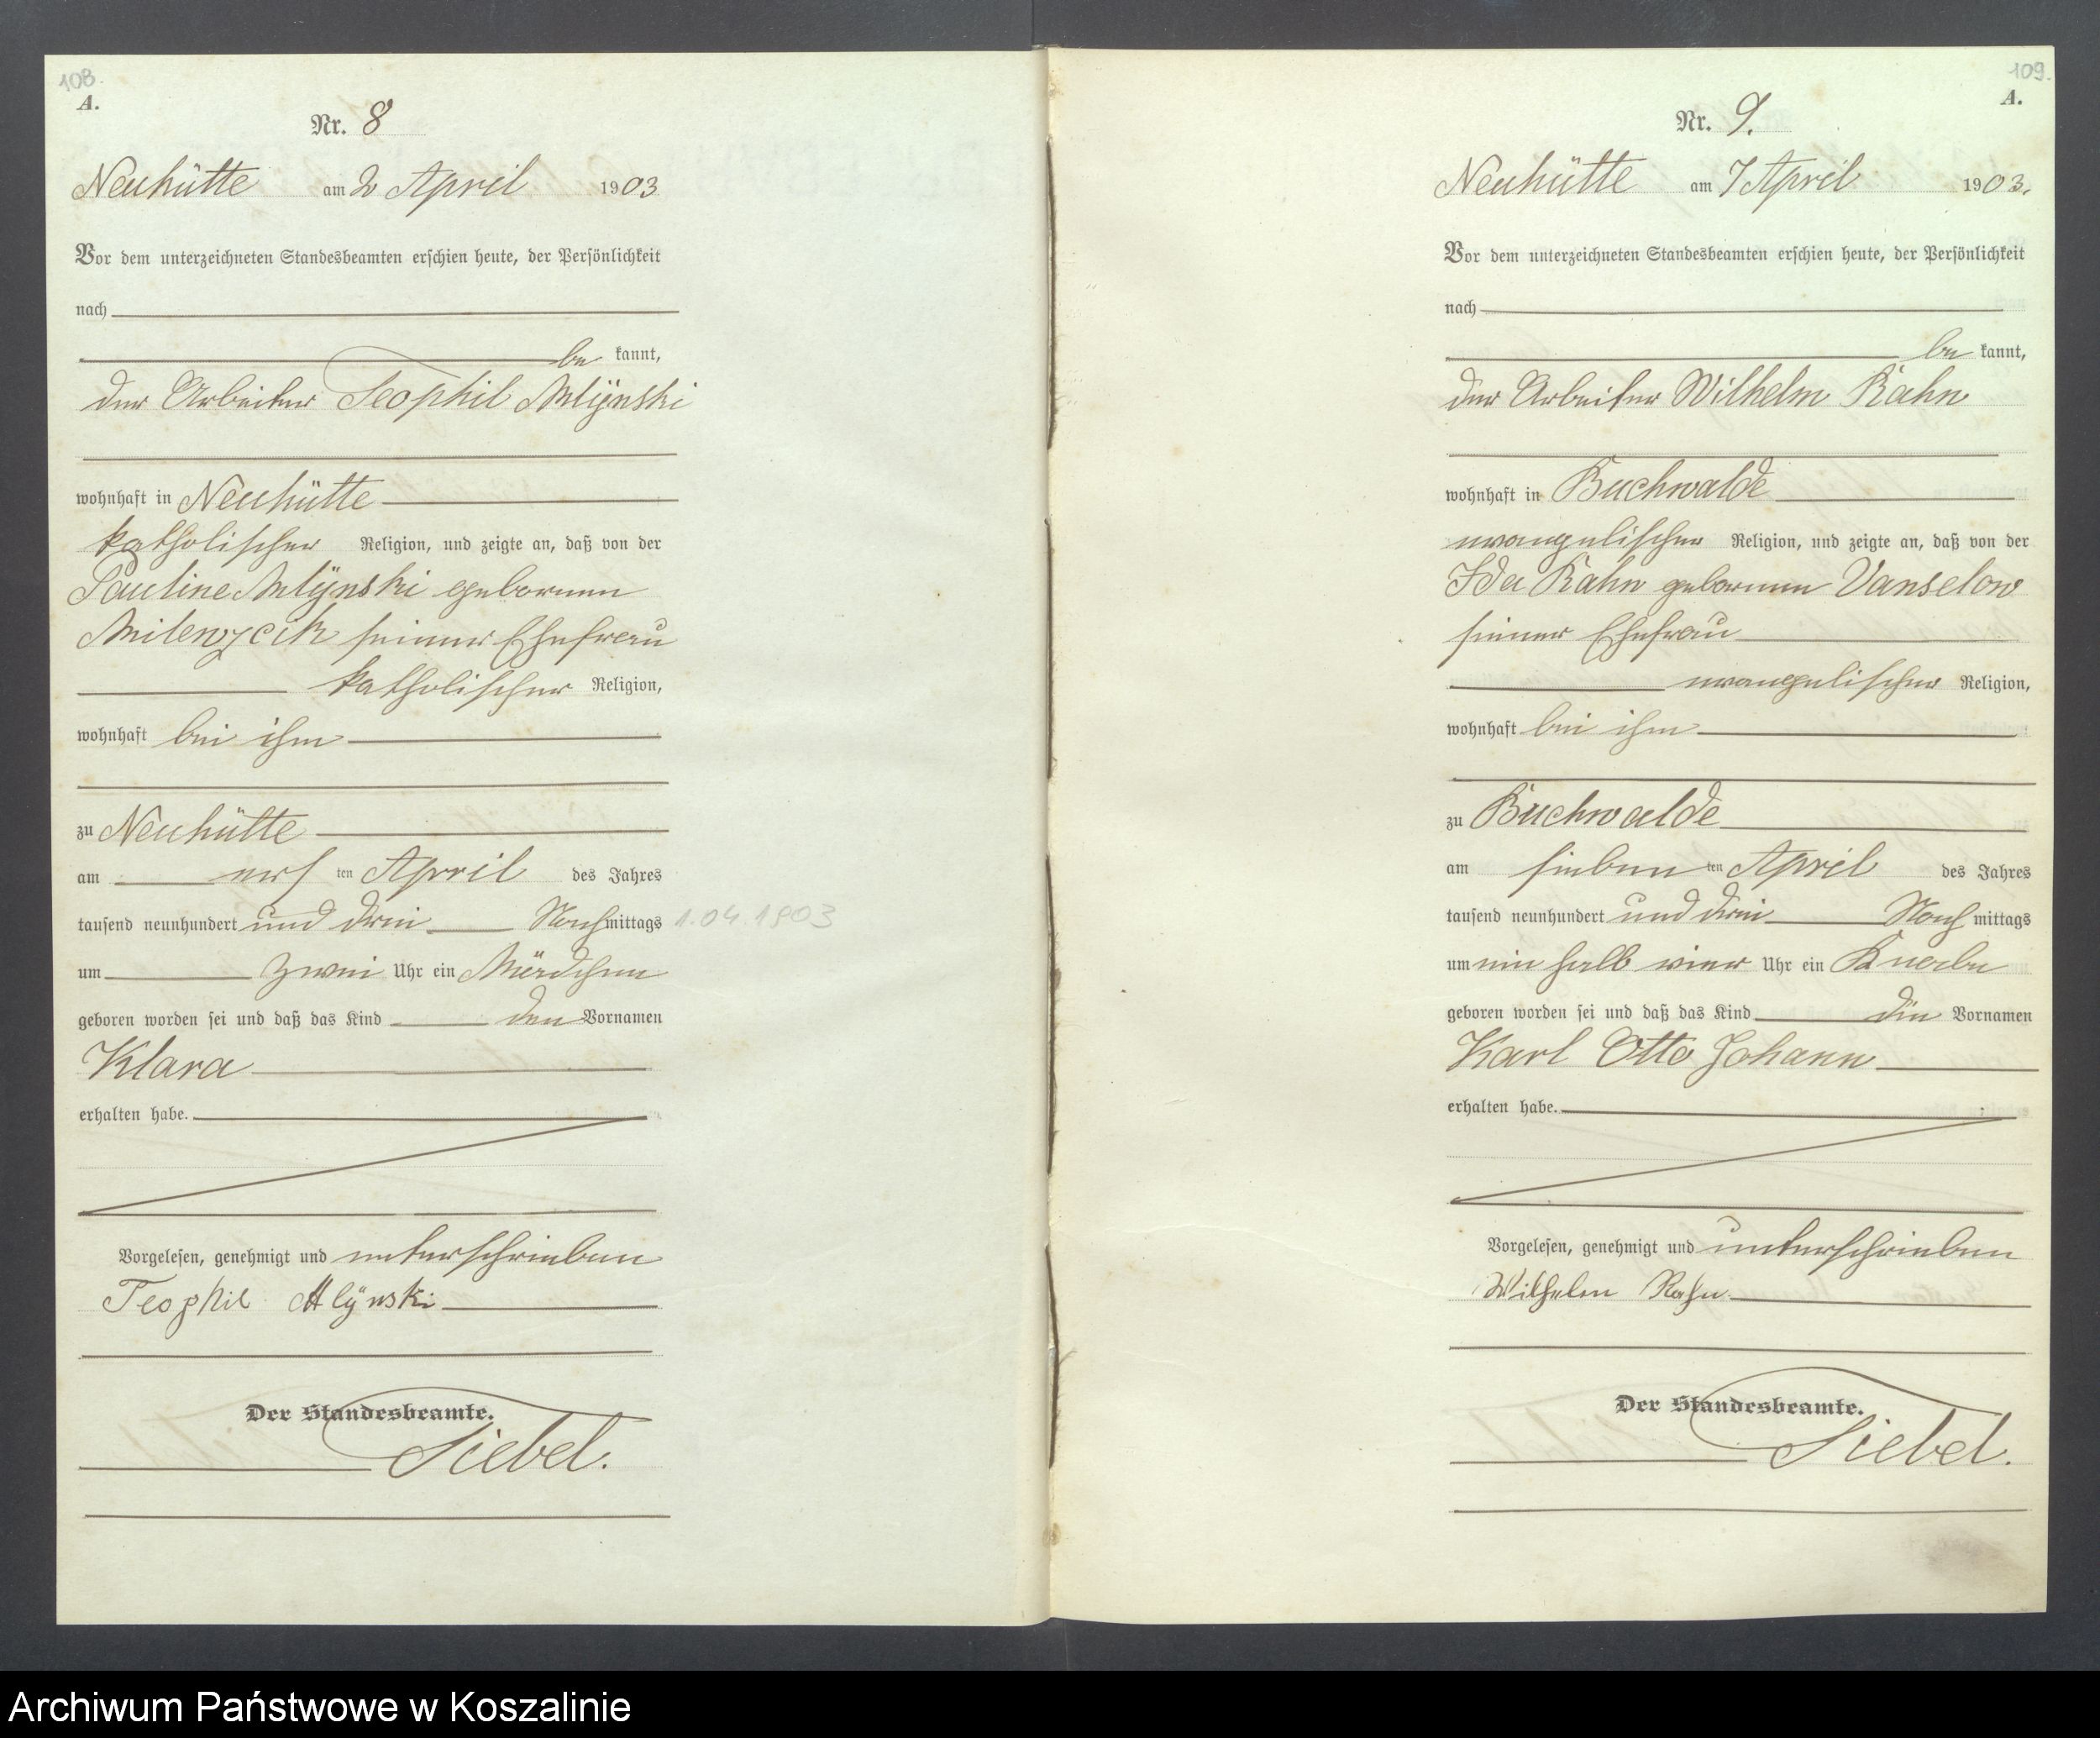 108.
A.
Nr. 8
Neuhütte am 2 April 1903
Vor dem unterzeichneten Standesbeamten erschien heute, der Persönlichkeit
nach
be kannt,
der Arbeiter Teophil Mlÿnski
wohnhaft in Neuhütte
katholischer Religion, und zeigte an, daß von der
Pauline Mlÿnski geborenen
seiner Ehefrau
katholischer Religion,
wohnhaft bei ihm
zu Neuhütte
am ers ten April des Jahres
tausend neunhundert und drei Nachmittags 1.04.1903
um zwei Uhr ein Mädchen
geboren worden sei und daß das Kind den Vornamen
Klara
erhalten habe.
Vorgelesen, genehmigt und unterschrieben
Teophil Mlÿnski
Der Standesbeamte.
Siebel.
109.
A.
Nr. 9.
Neuhütte am 7 April 1903.
Vor dem unterzeichneten Standesbeamten erschien heute, der Persönlichkeit
nach
be kannt,
der Arbeiter Wilhelm Rahn
wohnhaft in Buchwalde
evangelischer Religion, und zeigte an, daß von der
Ida Rahn geborenen Vanselow
seiner Ehefrau
evangelischer Religion,
wohnhaft bei ihm
zu Buchwalde
am sieben ten April des Jahres
tausend neunhundert und drei Nach mittags
um ein halb vier Uhr ein Knabe
geboren worden sei und daß das Kind die Vornamen
Karl Otto Johann
erhalten habe.
Vorgelesen, genehmigt und unterschrieben
Wilhelm Rahn
Der Standesbeamte.
Siebel.
Archiwum Państwowe w Koszalinie